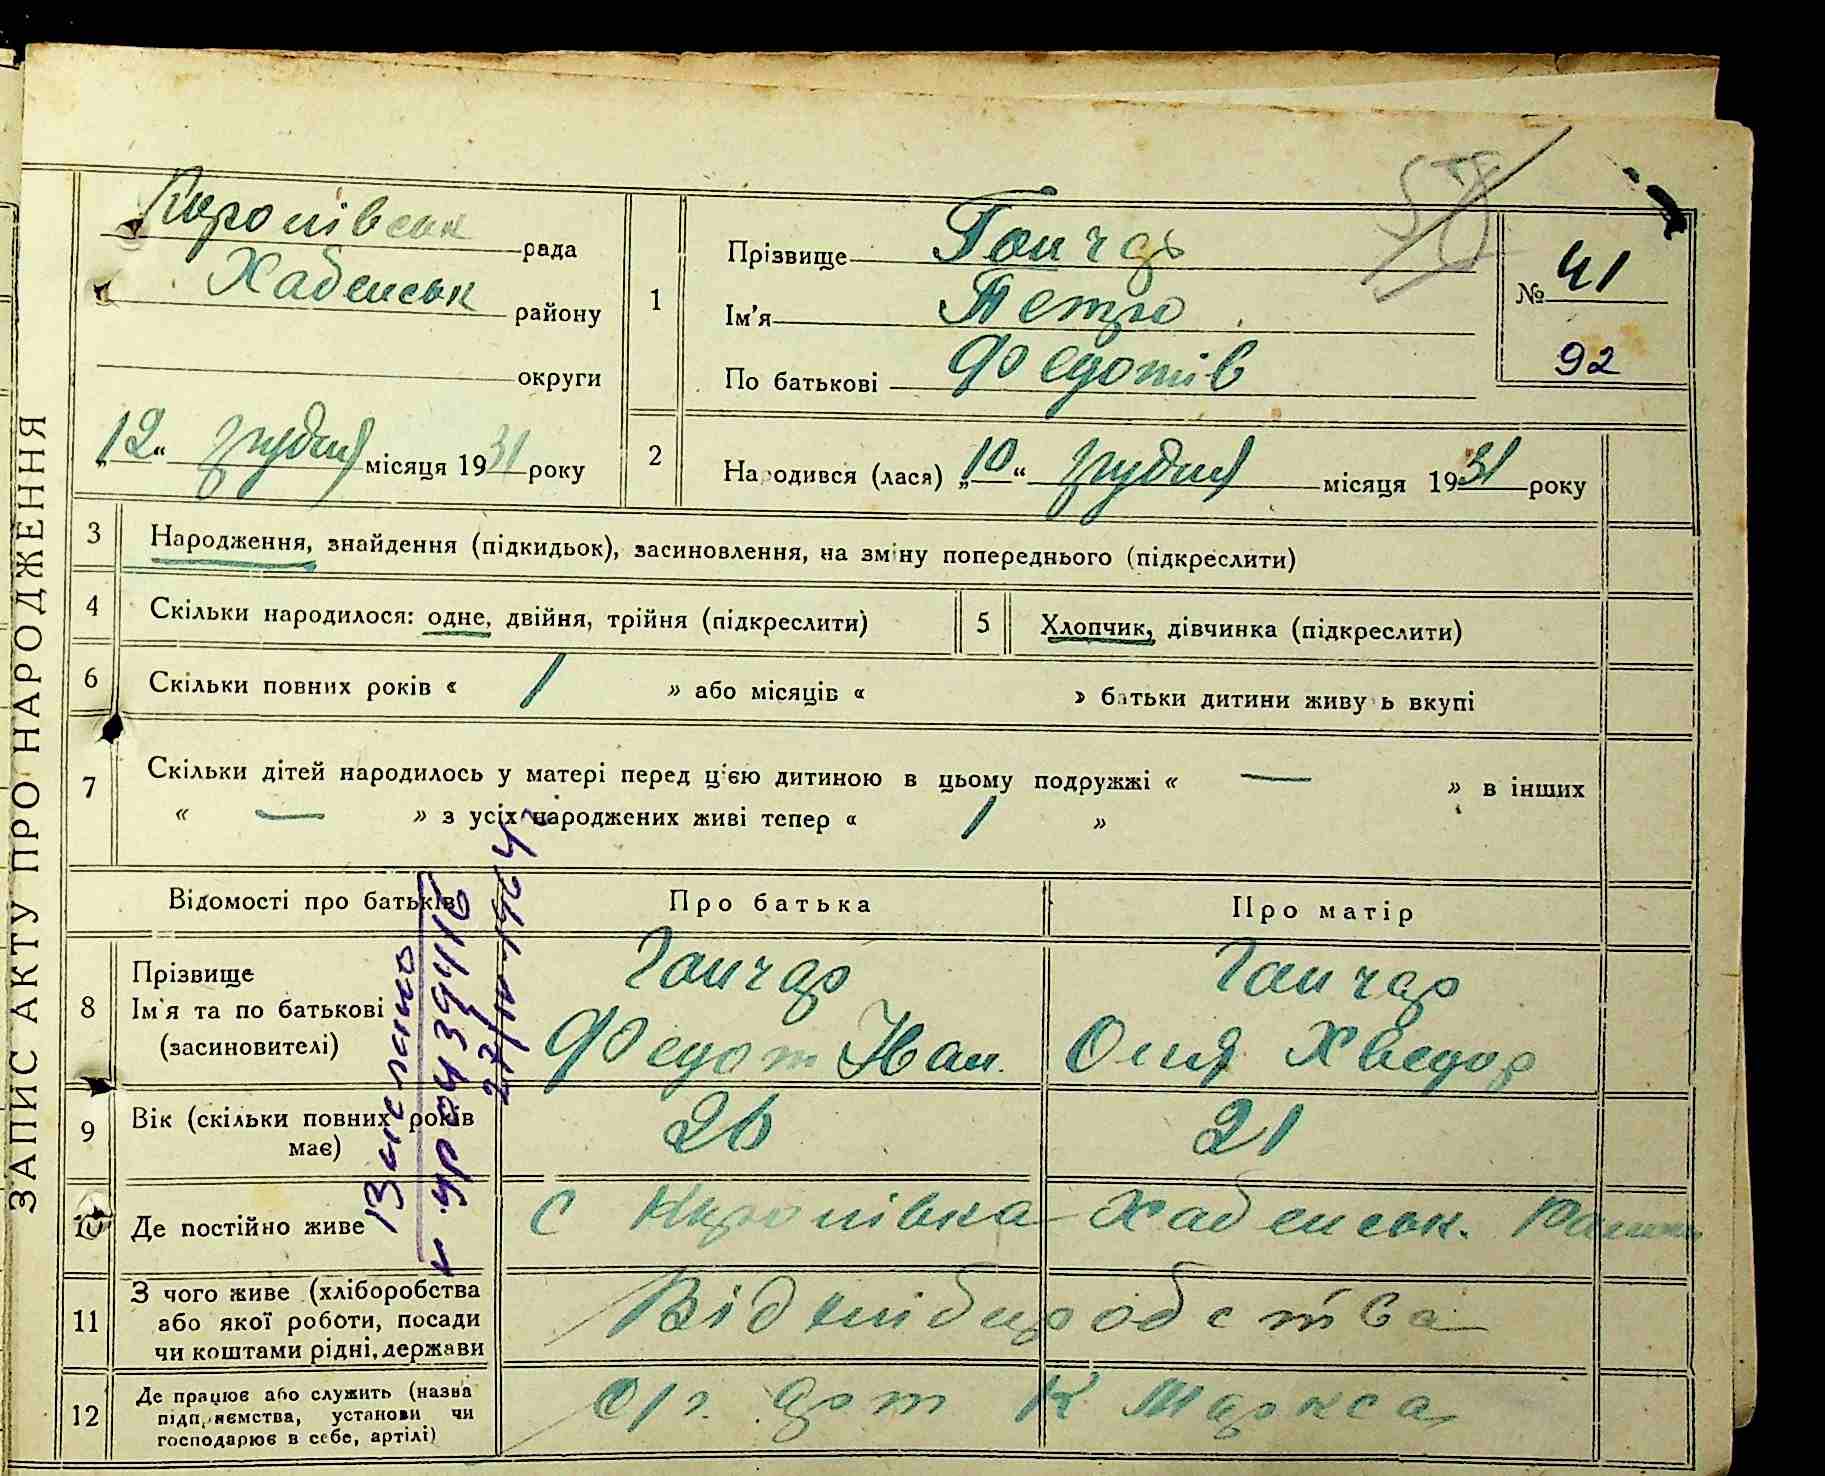 ЗАПИС АКТУ ПРО НАРОДЖЕННЯ
рада
Хабенськ району
округи
„12“ грудня місяця 1931 року
1
Прізвище Гончар
Ім'я Петро
По батькові Федотів
№ 41
92
2
Народився (лася) „10“ грудня місяця 1931 року
3 Народження, знайдення (підкидьок), засиновлення, на зміну попереднього (підкреслити)
4 Скільки народилося: одне, двійня, трійня (підкреслити) 5 Хлопчик, дівчинка (підкреслити)
6 Скільки повних років « 1 » або місяців « » батьки дитини живуть вкупі
7 Скільки дітей народилось у матері перед ц'єю дитиною в цьому подружжі « — » в інших
« — » з усіх народжених живі тепер « 1 »
Відомості про батьків Про батька Про матір
8 Прізвище
Ім'я та по батькові
(засиновителі)
Гончар
Федот Иван.
Гончар
Оля Хведор
9 Вік (скільки повних років
має)
26 21
10 Де постійно живе с Хабенськ.
11 З чого живе (хліборобства
або якої роботи, посади
чи коштами рідні, держави
Від хліборобства
12 Де працює або служить (назва
підприємства, установи чи
господарює в себе, артілі)
с/г. арт К Маркса